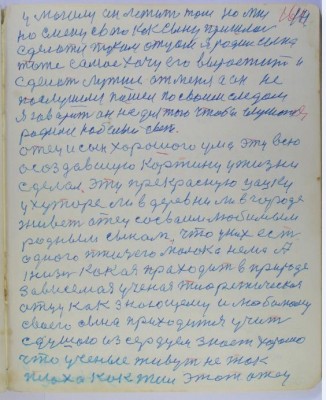 у могилу он летит том но мы
но смену свою как сыну пришлос
сделоть таким отцом я родни сына
тоже самое хочу его вырастит и
сделат лутше от меня а он не
послушил пашол по своим следам
я гаварит он не для того чтобы слушат
родные на белый свет.
отец и сын хорошого ума эту всю
о создавшую картину у жизни
сделал, эту прекрасную
у хуторе ли в деревни ли в городе
живет отец со своим любимым
родным сыном, что у них ест
одного птичего молока нема. А
жизн какая праходит в природе
зависемая ученая тиоретическая
отцу как знающему и любаному
своего сына приходится учит
с душою из сердцем знает хорошо
что ученые живут не так
плоха как жил этот отец